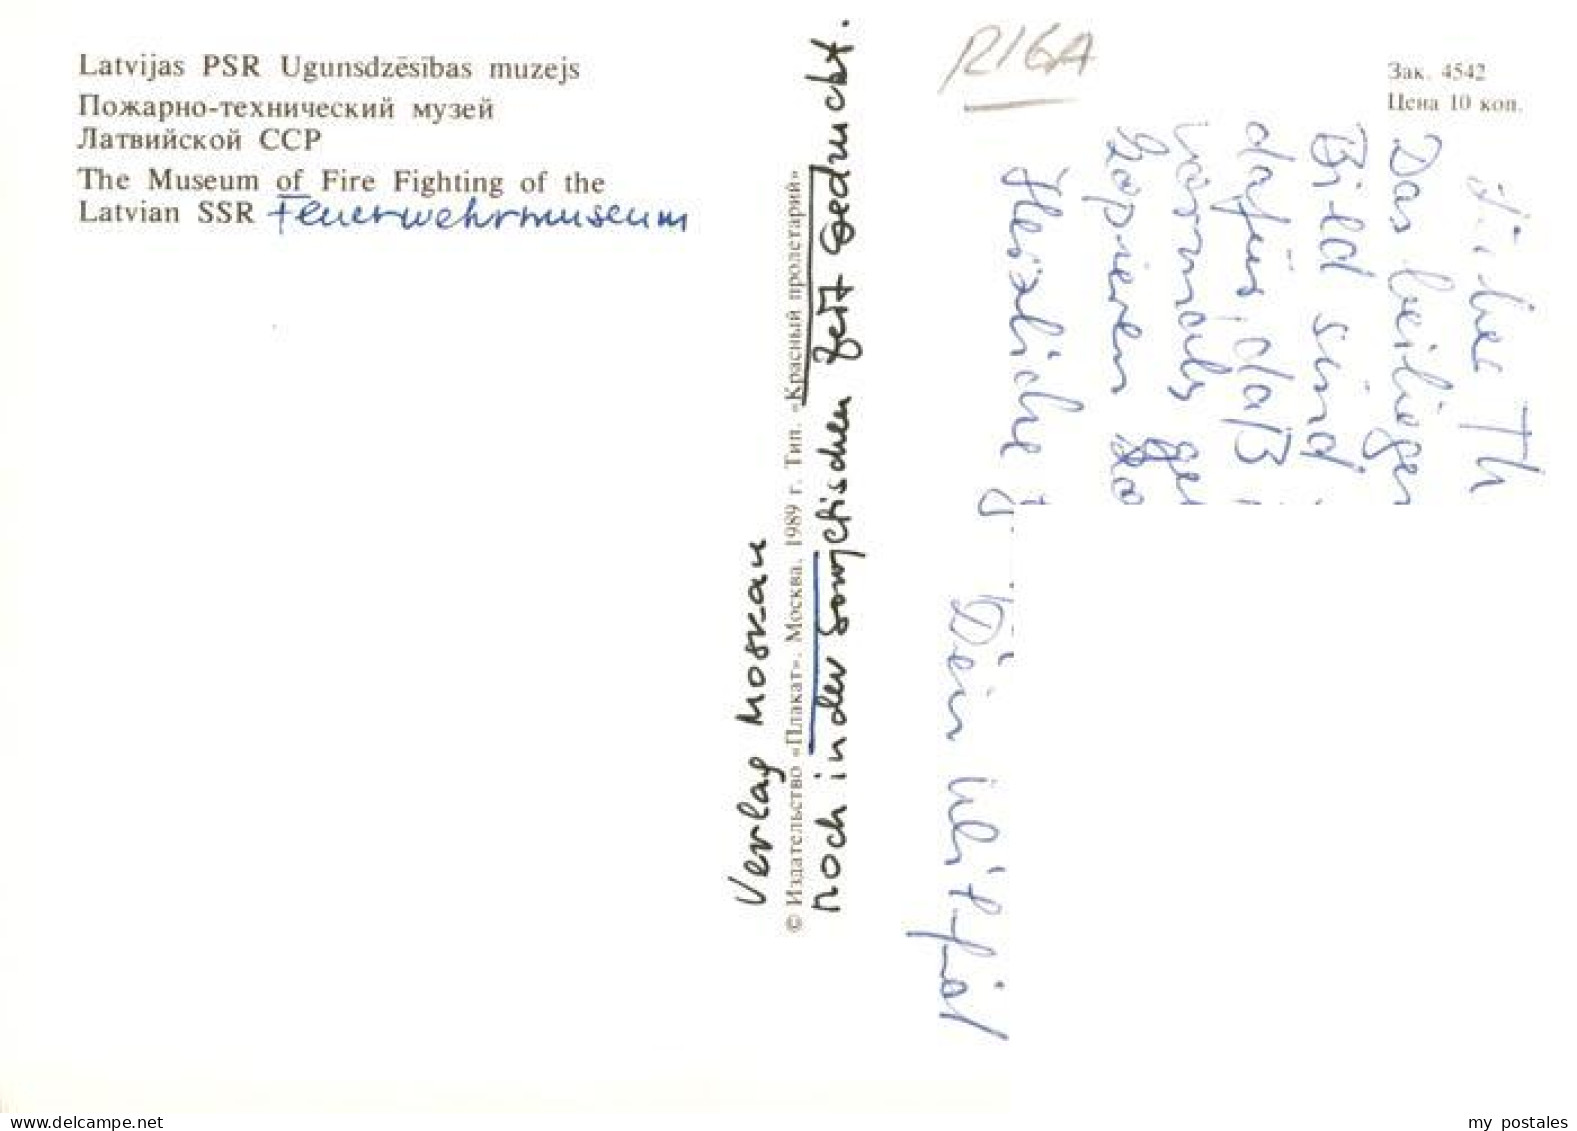 Latvijas PSR Ugunsdzēsības muzejs
Пожарно-технический музей
Латвийской ССР
The Museum of Fire Fighting of the
Latvian SSR Feuerwehrmuseum
Verlag Moskau
© Издательство «Плакат». Москва. 1989 г. Тип. «Красный пролетарий»
noch in der sowjetischen Zeit Gedruckt.
RIGA
Зак. 4542
Цена 10 коп.
Das beiliegen
Bild sind
dafür, daß
normals
kopieren
Herzliche
Dein
delcampe.net
my_postales